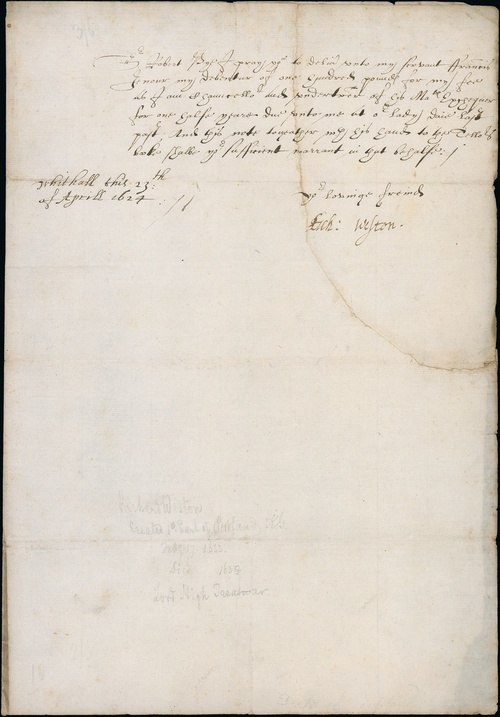 Sr Robert Pye I pray yow to deliver unto my servant Francis
my debentur of one hundred pounds for my fee
as of Chauncellor and undertrer of his Mats Exchequer
for one halfe yeare due unto me at or Lady daie last
past. And this note together wth his hand to the Tellors
booke shalbe yor sufficient warrant in that behalfe./
Whithall this 23th
of Aprill 1624
yor lovinge freind
Rich: Weston.
Richard Weston
Created 1st Earl of Portland
Lord High Treasurer